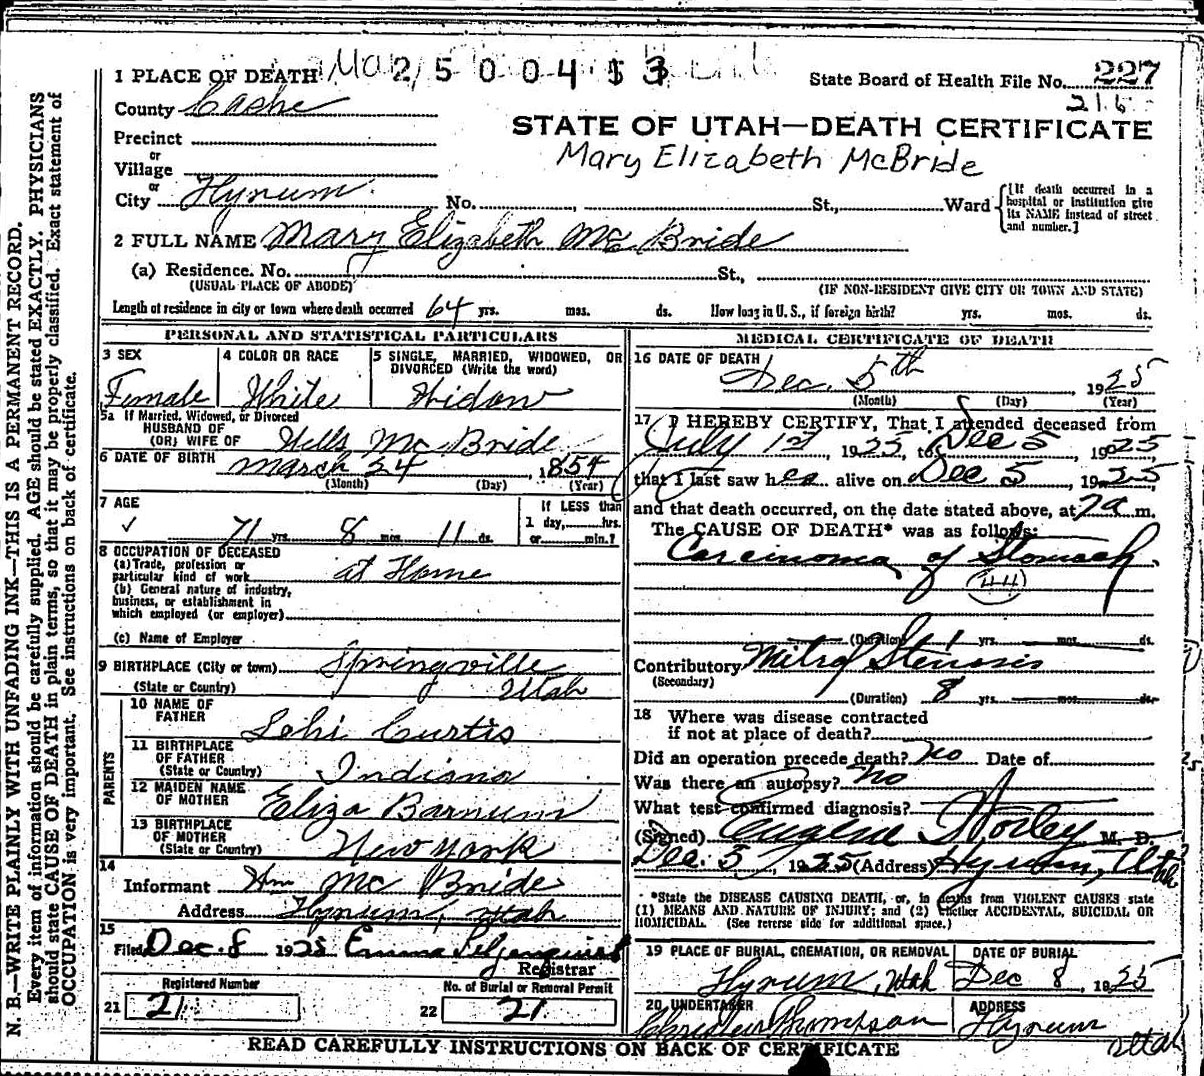 N. B.—WRITE PLAINLY WITH UNFADING INK—THIS IS A PERMANENT RECORD.
Every item of information should be carefully supplied. AGE should be stated EXACTLY. PHYSICIANS
should state CAUSE OF DEATH in plain terms, so that it may be properly classified. Exact statement of
OCCUPATION is very important. See instructions on back of certificate.
2500453
1 PLACE OF DEATH
State Board of Health File No. 227
216
County Cashe
STATE OF UTAH—DEATH CERTIFICATE
Mary Elizabeth McBride
Precinct
or
Village
or
City Hyrum No. St., Ward
[If death occurred in a
hospital or institution give
its NAME instead of street
and number.]
2 FULL NAME Mary Elizabeth McBride
(a) Residence. No. St.,
(USUAL PLACE OF ABODE) (IF NON-RESIDENT GIVE CITY OR TOWN AND STATE)
Length of residence in city or town where death occurred 64 yrs. mos. ds. How long in U. S., if foreign birth? yrs. mos. ds.
PERSONAL AND STATISTICAL PARTICULARS
3 SEX Female
4 COLOR OR RACE White
5 SINGLE, MARRIED, WIDOWED, OR
DIVORCED (Write the word)
Widow
5a If Married, Widowed, or Divorced
HUSBAND OF
(OR) WIFE OF McBride
6 DATE OF BIRTH March 24 1854
(Month) (Day) (Year)
7 AGE
71 yrs. 8 mos. 11 ds.
If LESS than
1 day, hrs.
or min.?
8 OCCUPATION OF DECEASED
(a) Trade, profession or
particular kind of work at Home
(b) General nature of industry,
business, or establishment in
which employed (or employer)
(c) Name of Employer
9 BIRTHPLACE (City or town) Springville
(State or Country) Utah
PARENTS
10 NAME OF
FATHER Lehi Curtis
11 BIRTHPLACE
OF FATHER
(State or Country) Indiana
12 MAIDEN NAME
OF MOTHER Eliza Barnum
13 BIRTHPLACE
OF MOTHER
(State or Country) New York
14
Informant Wm McBride
Address Hyrum, Utah
15
Filed Dec. 8 1925 Emma
Registrar
Registered Number
21 21
No. of Burial or Removal Permit
22 21
MEDICAL CERTIFICATE OF DEATH
16 DATE OF DEATH
Dec. 5th, 1925
(Month) (Day) (Year)
17 I HEREBY CERTIFY, That I attended deceased from
July 1st, 1925, to Dec 5, 1925
that I last saw her alive on Dec 5, 1925,
and that death occurred, on the date stated above, at 7 a m.
The CAUSE OF DEATH* was as follows:
Carcinoma of Stomach.
(44)
(Duration) 1 yrs. mos. ds.
Contributory Mitral Stenosis
(Secondary)
(Duration) 8 yrs. mos. ds.
18 Where was disease contracted
if not at place of death?
Did an operation precede death? no Date of
Was there an autopsy? no
What test confirmed diagnosis?
(Signed) Eugene Worley M. D.
Dec. 5, 1925 (Address) Hyrum, Utah
*State the DISEASE CAUSING DEATH, or, in deaths from VIOLENT CAUSES state
(1) MEANS AND NATURE OF INJURY; and (2) whether ACCIDENTAL, SUICIDAL OR
HOMICIDAL. (See reverse side for additional space.)
19 PLACE OF BURIAL, CREMATION, OR REMOVAL
Hyrum, Utah
DATE OF BURIAL
Dec 8, 1925
20 UNDERTAKER
Thompson
ADDRESS
Hyrum
Utah
READ CAREFULLY INSTRUCTIONS ON BACK OF CERTIFICATE